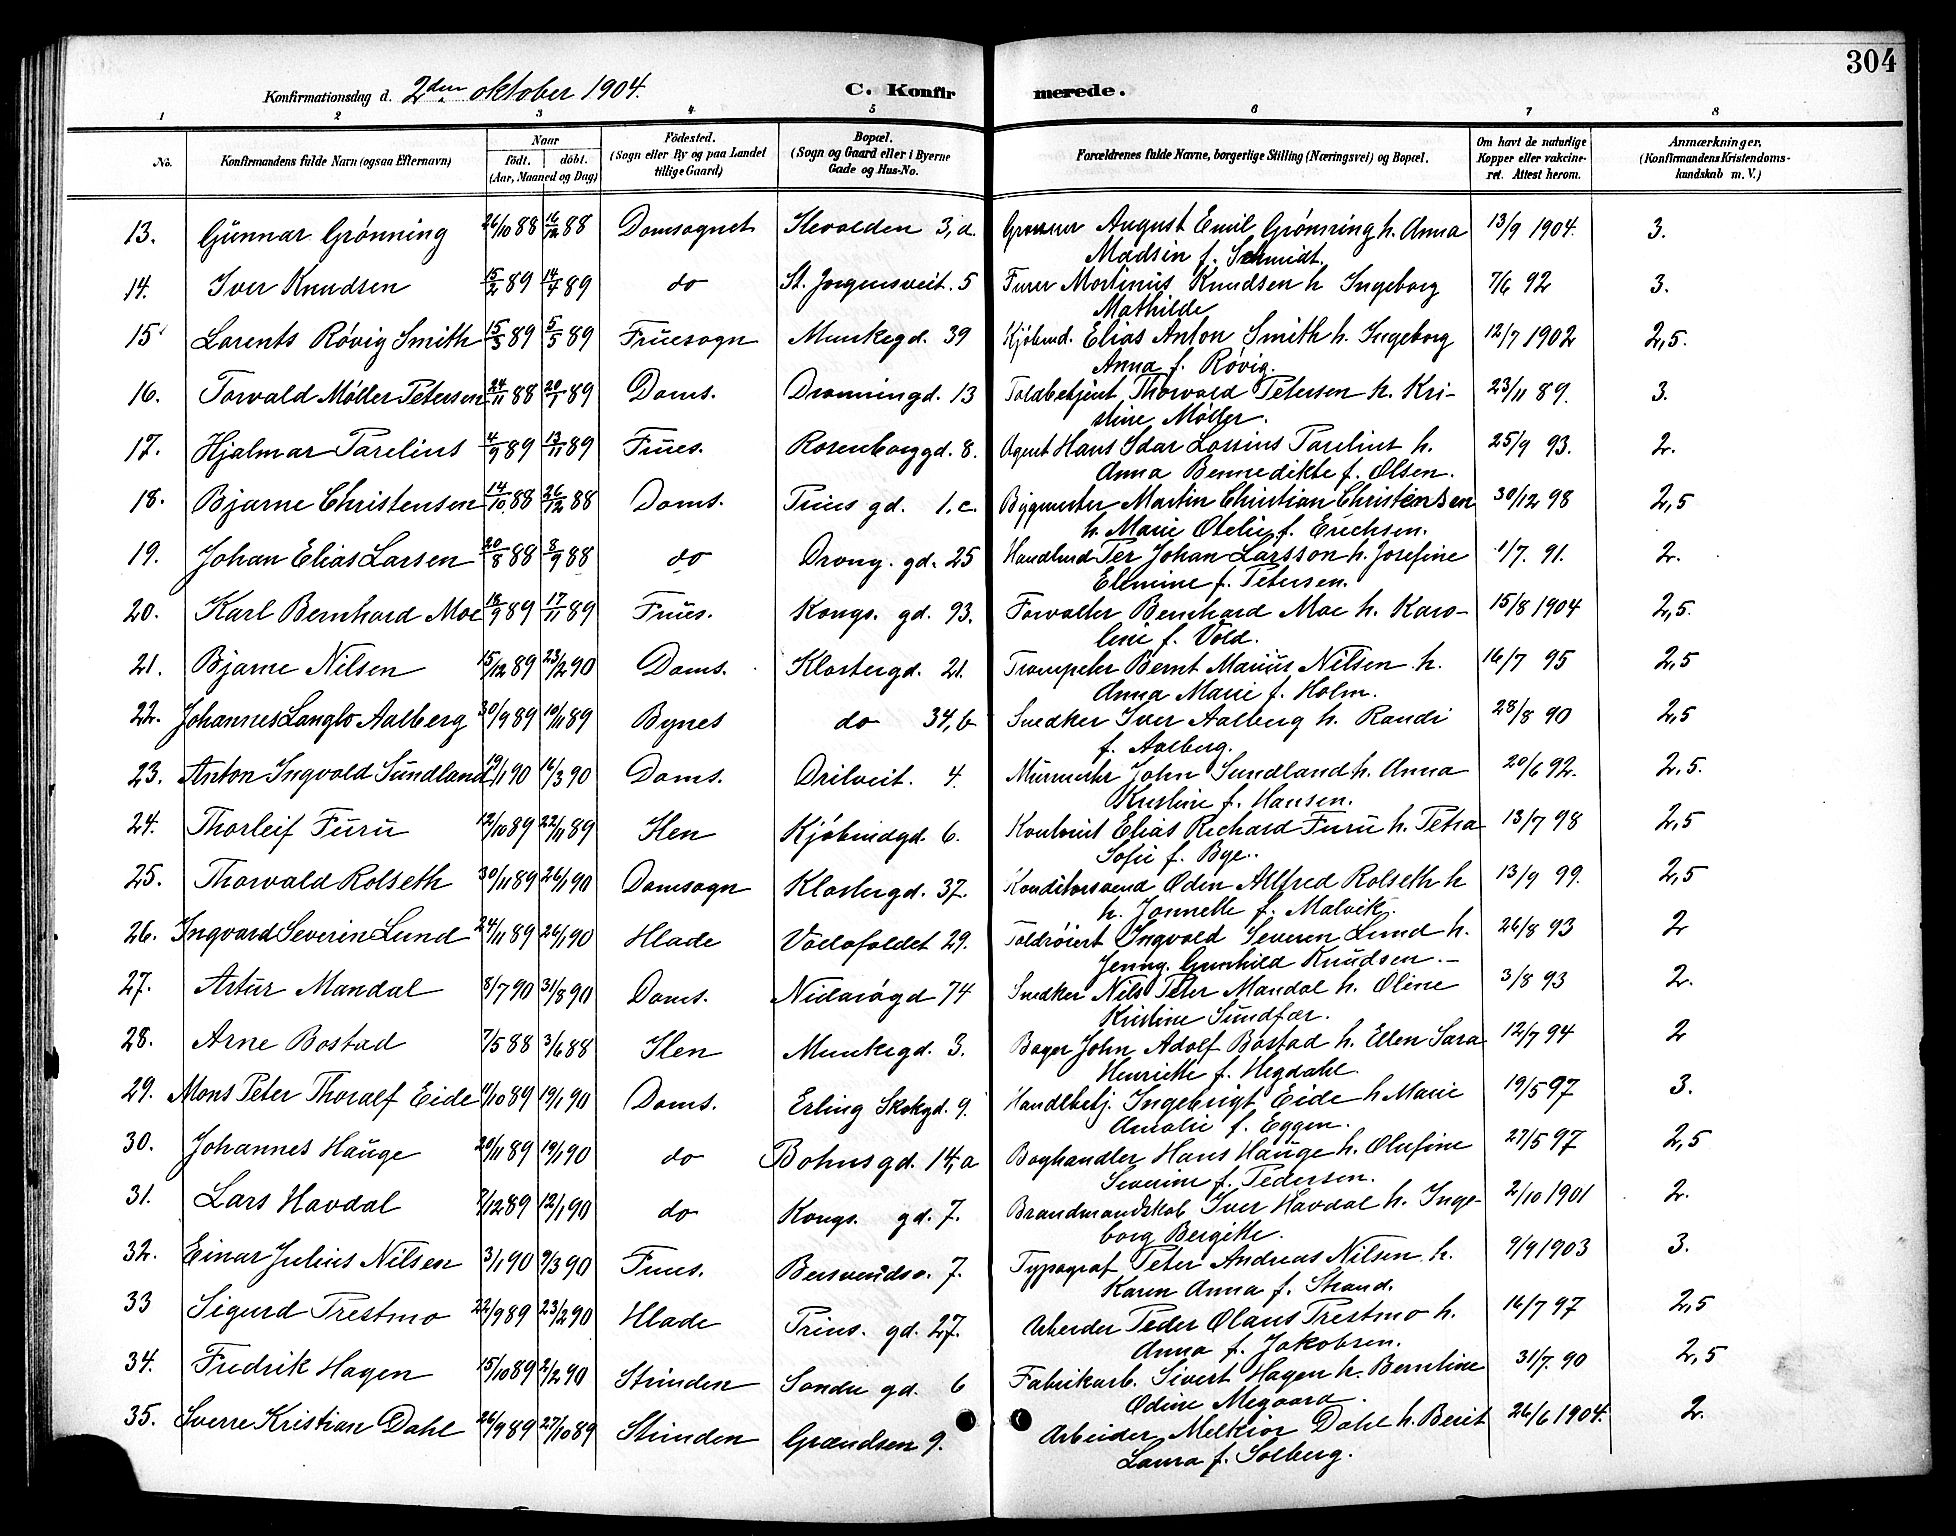 304
Konfirmationsdag d. 2den oktober 1904. C. Konfirmerede.
1 2 3 4 5 6 7 8
No. Konfirmandens fulde Navn (ogsaa Efternavn) Naar født. døbt. (Aar, Maaned og Dag) Födested. (Sogn eller By og paa Landet tillige Gaard) Bopæl. (Sogn og Gaard eller i Byerne Gade og Hus-No. Forældrenes fulde Navne, borgerlige Stilling (Næringsvei) og Bopæl. Om havt de naturlige Kopper eller vakcineret. Attest herom. Anmærkninger. (Konfirmandens Kristendomskundskab m. V.)
13. Gunnar Grønning 26/10 88 16/12 88 Domsognet Ilevolden 3,a. August Emil Grønning h. Anna 13/9 1904. 3.
Madsin f. Schmidt.
14. Iver Knudsen 15/2 89 14/7 89 do St. Jørgensveit. 5 Furer Martinus Knudsen h Ingeborg 7/6 92 3.
Mathilde
15. Lorents Røvig Smith 15/3 89 5/5 89 Fruesogn Munkegd. 39 Kjøbmd. Elias Anton Smith h. Ingeborg 12/7 1902 2,5.
Anna f. Røvig.
16. Torvald Møller Petersen 24/11 88 20/1 89 Doms. Dronningd. 13 Toldbetjent Thorvald Petersen h. Kri- 23/11 89. 3.
stine Møller.
17. Hjalmar Parelius 4/9 89 13/11 89 Frues. Rosenborggd. 8. Agent Hans Idar Lossius Parelius h. 25/9 93. 2.
Anna Bennedikte f. Olsen.
18. Bjarne Christensen 14/10 88 26/12 88 Doms. Prins gd. 1.c. Bygmester Martin Christian Christensen 30/12 98 2,5
h. Marie Otelie f. Erichsen.
19. Johan Elias Larsen 20/8 88 3/9 88 do Drong. gd. 25 Per Johan Larsson h. Josefine 1/7. 91. 2.
Elemine f. Petersen.
20. Karl Bernhard Moe 18/9 89 17/11 89 Frues. Kongs. gd. 93. Forvalter Bernhard Moe h. Karo- 15/8 1904 2,5.
line f. Vold.
21. Bjarne Nilsen 15/12 89 23/2 90 Doms. Klostergd. 21. Trompeter Bernt Marius Nilsen h. 16/7 95 2,5
Anna Marie f. Holm.
22. Johannes Langlo Aalberg 30/9 89 10/11 89 Bynes do 34,b Snedker Iver Aalberg h. Randi 28/8 90 2,5
f. Aalberg.
23. Anton Ingvald Sundland 19/1 90 16/3 90 Doms. Ørilveit. 4. Murmester John Sundland h. Anna 20/6 92. 2.5.
Kristine f. Hansen.
24. Thorleif Furu 12/10 89 22/11 89 Ilen Kjøbmdgd. 6. Kontorist Elias Richard Furu h. Petra 13/7 98 2,5
Sofie f. Bye.
25. Thorvald Rolseth 30/11 89 26/1 90 Domsogn Klostergd. 37. Konditorsvend Oden Allfred Rolseth h 13/9 99. 2,5
h. Jonnette f. Malvik.
26. Ingvard Severin Lund 24/11 89 26/1 90 Hlade Vollafaldet 29. Ingvald Severin Lund h. 26/8 93 2
Jenny Gunhild Knudsen.
27. Artur Mandal 8/7 90 31/8 90 Doms. Nidarøgd 74 Snedker Nils Peter Mandal h. Oline 3/8 93 2.
Kristine Sundfær.
28. Arne Bostad 7/5 88 3/6 88 Ilen Munkegd. 3. Bager John Adolf Bostad h. Ellen Sara 12/7 94 2
Henriette f. Hegdahl.
29. Mons Peter Thoralf Eide 11/10 89 19/1 90 Doms. Erling Skokgd. 9. Handlbetj. Ingebrigt Eide h Marie 19/5 97 3.
Amalie f. Eggen.
30. Johannes Hauge 20/11 89 19/1 90 do Bohus gd. 14,a Boghandler Hans Hauge h. Olufine 27/5 97 2,5
Severine f. Pedersen.
31. Lars Havdal 2/12 89 12/1 90 do Kongs. gd. 7. Brandmandskab Iver Havdal h. Inge- 2/10 1901 2.
borg Bergitte.
32. Einar Julius Nilsen 3/1 90 9/3 90 Frues. Bersvendsv. 7. Typograf Peter Andreas Nilsen h. 9/9 1903 3.
Karen Anna f. Strand.
33 Sigurd Trestmo 22/9 89 23/2 90 Hlade Prins. gd. 27. Arbeider Peder Olaus Trestmo h. 16/7 97 2,5
Anna f. Jakobsen.
34. Fredrik Hagen 15/10 89 2/2 90 Strinden Søndre gd. 6 Fabrikarb. Sivert Hagen h. Berntine 31/7. 90 2,5
Odine Megaard.
35. Sverre Kristian Dahl 26/9 89 27/10 89 Strinden Grændsen 9. Arbeider Melkior Dahl h. Berit 26/6 1904. 2.
Laura f. Solberg.